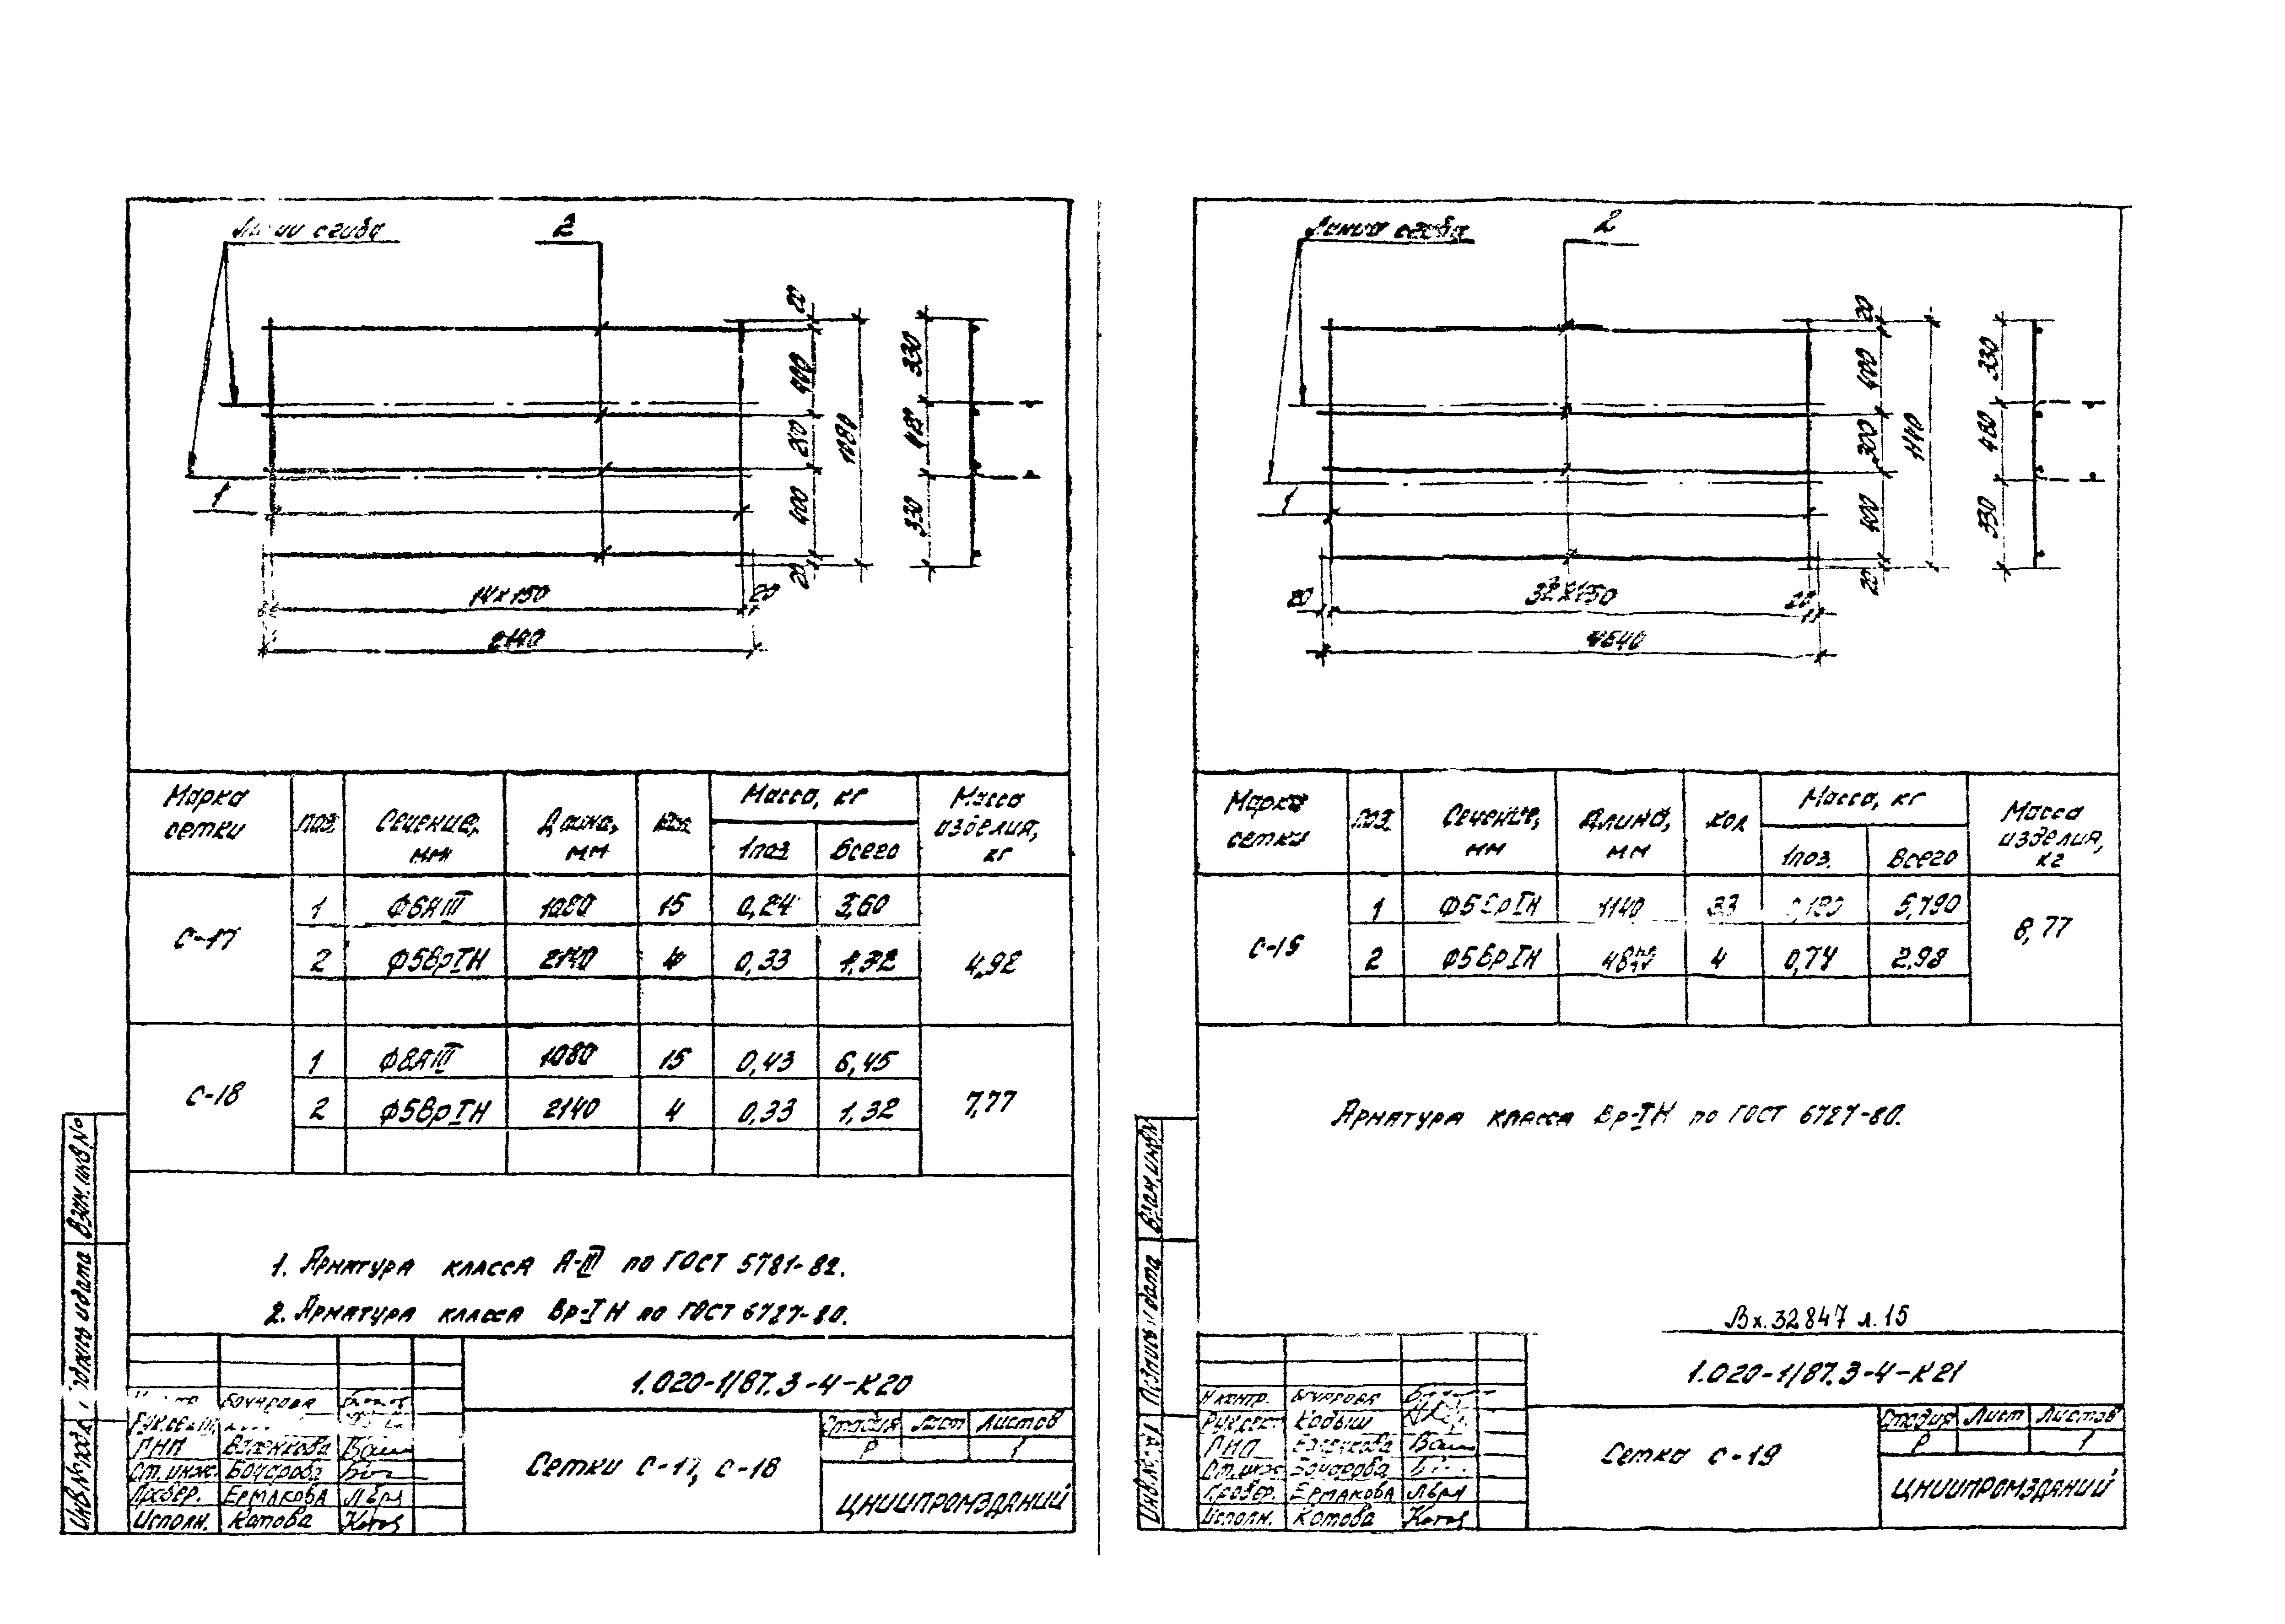 Линии сгиба
2
20
400
330
1080
240
400
330
1
20
14×150
20
2140
Марка сетки
поз.
Сечение, мм
Длина, мм
кол
Масса, кг
1 поз.
Всего
Масса изделия, кг
С-17
1 Ф6АIII 1080 15 0,24 3,60
2 Ф5ВрIН 2140 4 0,33 1,32
4,92
С-18
1 Ф8АIII 1080 15 0,43 6,45
2 Ф5ВрIН 2140 4 0,33 1,32
7,77
1. Арматура класса А-III по ГОСТ 5781-82.
2. Арматура класса Вр-IН по ГОСТ 6727-80.
Взам.инв.№
Подпись и дата
Инв.№ подл.
1.020-1/87.3-4-К20
Бочарова
Рук.сект.
ГИП Валенкова
Ст.инж. Бочарова
Провер. Ермакова
Исполн. Котова
Сетки С-17, С-18
Стадия Лист Листов
Р 1
ЦНИИПРОМЗДАНИЙ
Линия сгиба
2
20
400
330
1140
300
480
400
330
1
20
20
32×150
20
4840
Марка сетки
поз.
Сечение, мм
Длина, мм
кол
Масса, кг
1 поз.
Всего
Масса изделия, кг
С-19
1 Ф5ВрIН 1140 33 0,180 5,790
2 Ф5ВрIН 4840 4 0,74 2,98
8,77
Арматура класса Вр-IН по ГОСТ 6727-80.
Вх.32847 л.15
Взам.инв.№
Подпись и дата
Инв.№ подл
1.020-1/87.3-4-К21
Н.контр. Бочарова
Рук.сект. Кодыш
ГИП Валенкова
Ст.инж. Бочарова
Провер. Ермакова
Исполн. Котова
Сетка С-19
Стадия Лист Листов
Р 1
ЦНИИПРОМЗДАНИЙ